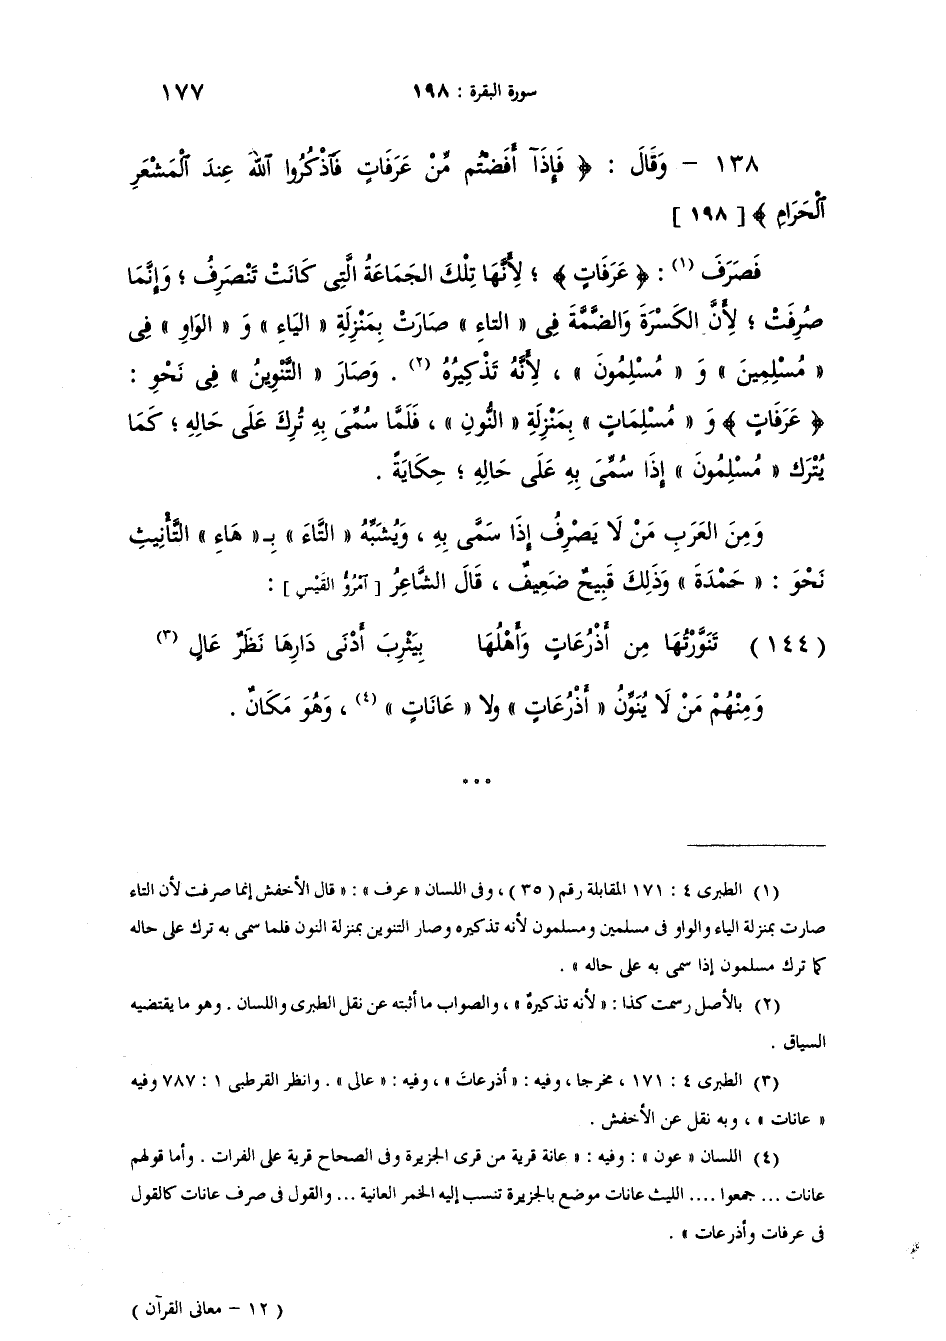 سورة البقرة : ١٩٨ ١٧٧
١٣٨ – وَقَالَ : ﴿ فَإِذَآ أَفَضْتُم مِّنْ عَرَفَاتٍ فَٱذْكُرُوا ٱللَّهَ عِندَ ٱلْمَشْعَرِ
ٱلْحَرَامِ ﴾ [ ١٩٨ ]
فَصَرَفَ (١) : ﴿ عَرَفَاتٍ ﴾ ؛ لِأَنَّهَا تِلْكَ الجَمَاعَةُ الَّتِى كَانَتْ تَنْصَرِفُ ؛ وَإِنَّمَا
صُرِفَتْ ؛ لِأَنَّ الكَسْرَةَ وَالضَّمَّةَ فِى « التاءِ » صَارَتْ بِمَنْزِلَةِ « اليَاءِ » وَ « الوَاوِ » فِى
« مُسْلِمِينَ » وَ « مُسْلِمُونَ » ، لِأَنَّهُ تَذْكِيرُهُ (٢) . وَصَارَ « التَّنْوِينُ » فِى نَحْوِ :
﴿ عَرَفَاتٍ ﴾ وَ « مُسْلِمَاتٍ » بِمَنْزِلَةِ « النُّونِ » ، فَلَمَّا سُمِّىَ بِهِ تُرِكَ عَلَى حَالِهِ ؛ كَمَا
يُتْرَك « مُسْلِمُونَ » إِذَا سُمِّىَ بِهِ عَلَى حَالِهِ ؛ حِكَايَةً .
وَمِنَ العَرَبِ مَنْ لَا يَصْرِفُ إِذَا سَمَّى بِهِ ، وَيُشَبِّهُ « التَّاءَ » بِـ« هَاءِ » التَّأْنِيثِ
نَحْوَ : « حَمْدَةَ » وَذَلِكَ قَبِيحٌ ضَعِيفٌ ، قَالَ الشَّاعِرُ [ ٱمْرُؤُ القَيْسِ ] :
( ١٤٤ ) تَنَوَّرْتُهَا مِن أَذْرُعَاتٍ وَأَهْلُهَا بِيَثْرِبَ أَدْنَى دَارِهَا نَظَرٌ عَالٍ (٣)
وَمِنْهُمْ مَنْ لَا يُنَوِّنُ « أَذْرُعَاتٍ » ولا « عَانَاتٍ » (٤) ، وَهُوَ مَكَانٌ .
...
(١) الطبرى ٤ : ١٧١ المقابلة رقم ( ٣٥ ) ، وفى اللسان « عرف » : « قال الأخفش إنما صرفت لأن التاء
صارت بمنزلة الياء والواو فى مسلمين ومسلمون لأنه تذكيره وصار التنوين بمنزلة النون فلما سمى به ترك على حاله
كما ترك مسلمون إذا سمى به على حاله » .
(٢) بالأصل رسمت كذا : « لأنه تذكيرة » ، والصواب ما أثبته عن نقل الطبرى واللسان . وهو ما يقتضيه
السياق .
(٣) الطبرى ٤ : ١٧١ ، مخرجا ، وفيه : « أذرعاتَ » ، وفيه : « عالى » . وانظر القرطبى ١ : ٧٨٧ وفيه
« عانات » ، وبه نقل عن الأخفش .
(٤) اللسان « عون » : وفيه : « عانة قرية من قرى الجزيرة وفى الصحاح قرية على الفرات . وأما قولهم
عانات ... جمعوا .... الليث عانات موضع بالجزيرة تنسب إليه الخمر العانية ... والقول فى صرف عانات كالقول
فى عرفات وأذرعات » .
( ١٢ – معانى القرآن )